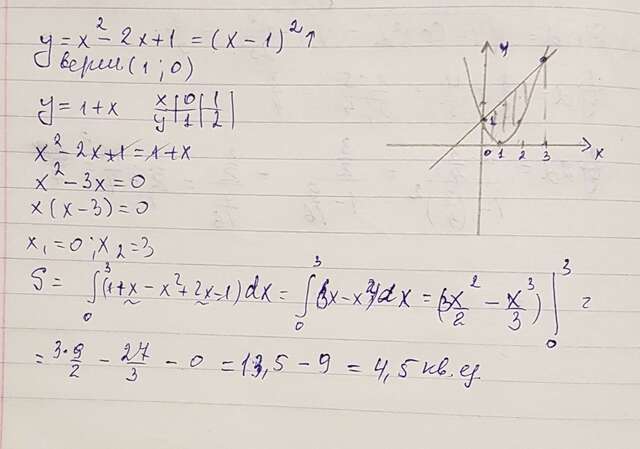 y = x² - 2x + 1 = (x - 1)² ↑
верш (1; 0)
y = 1 + x   x | 0 | 1
y | 1 | 2
x² - 2x + 1 = 1 + x
x² - 3x = 0
x(x - 3) = 0
x₁ = 0; x₂ = 3
S = ∫₀³ (1 + x - x² + 2x - 1) dx = ∫₀³ (3x - x²) dx = (3x²/2 - x³/3) |₀³ =
= 3·9/2 - 27/3 - 0 = 13,5 - 9 = 4,5 кв. ед
y
1
0 1 2 3 x